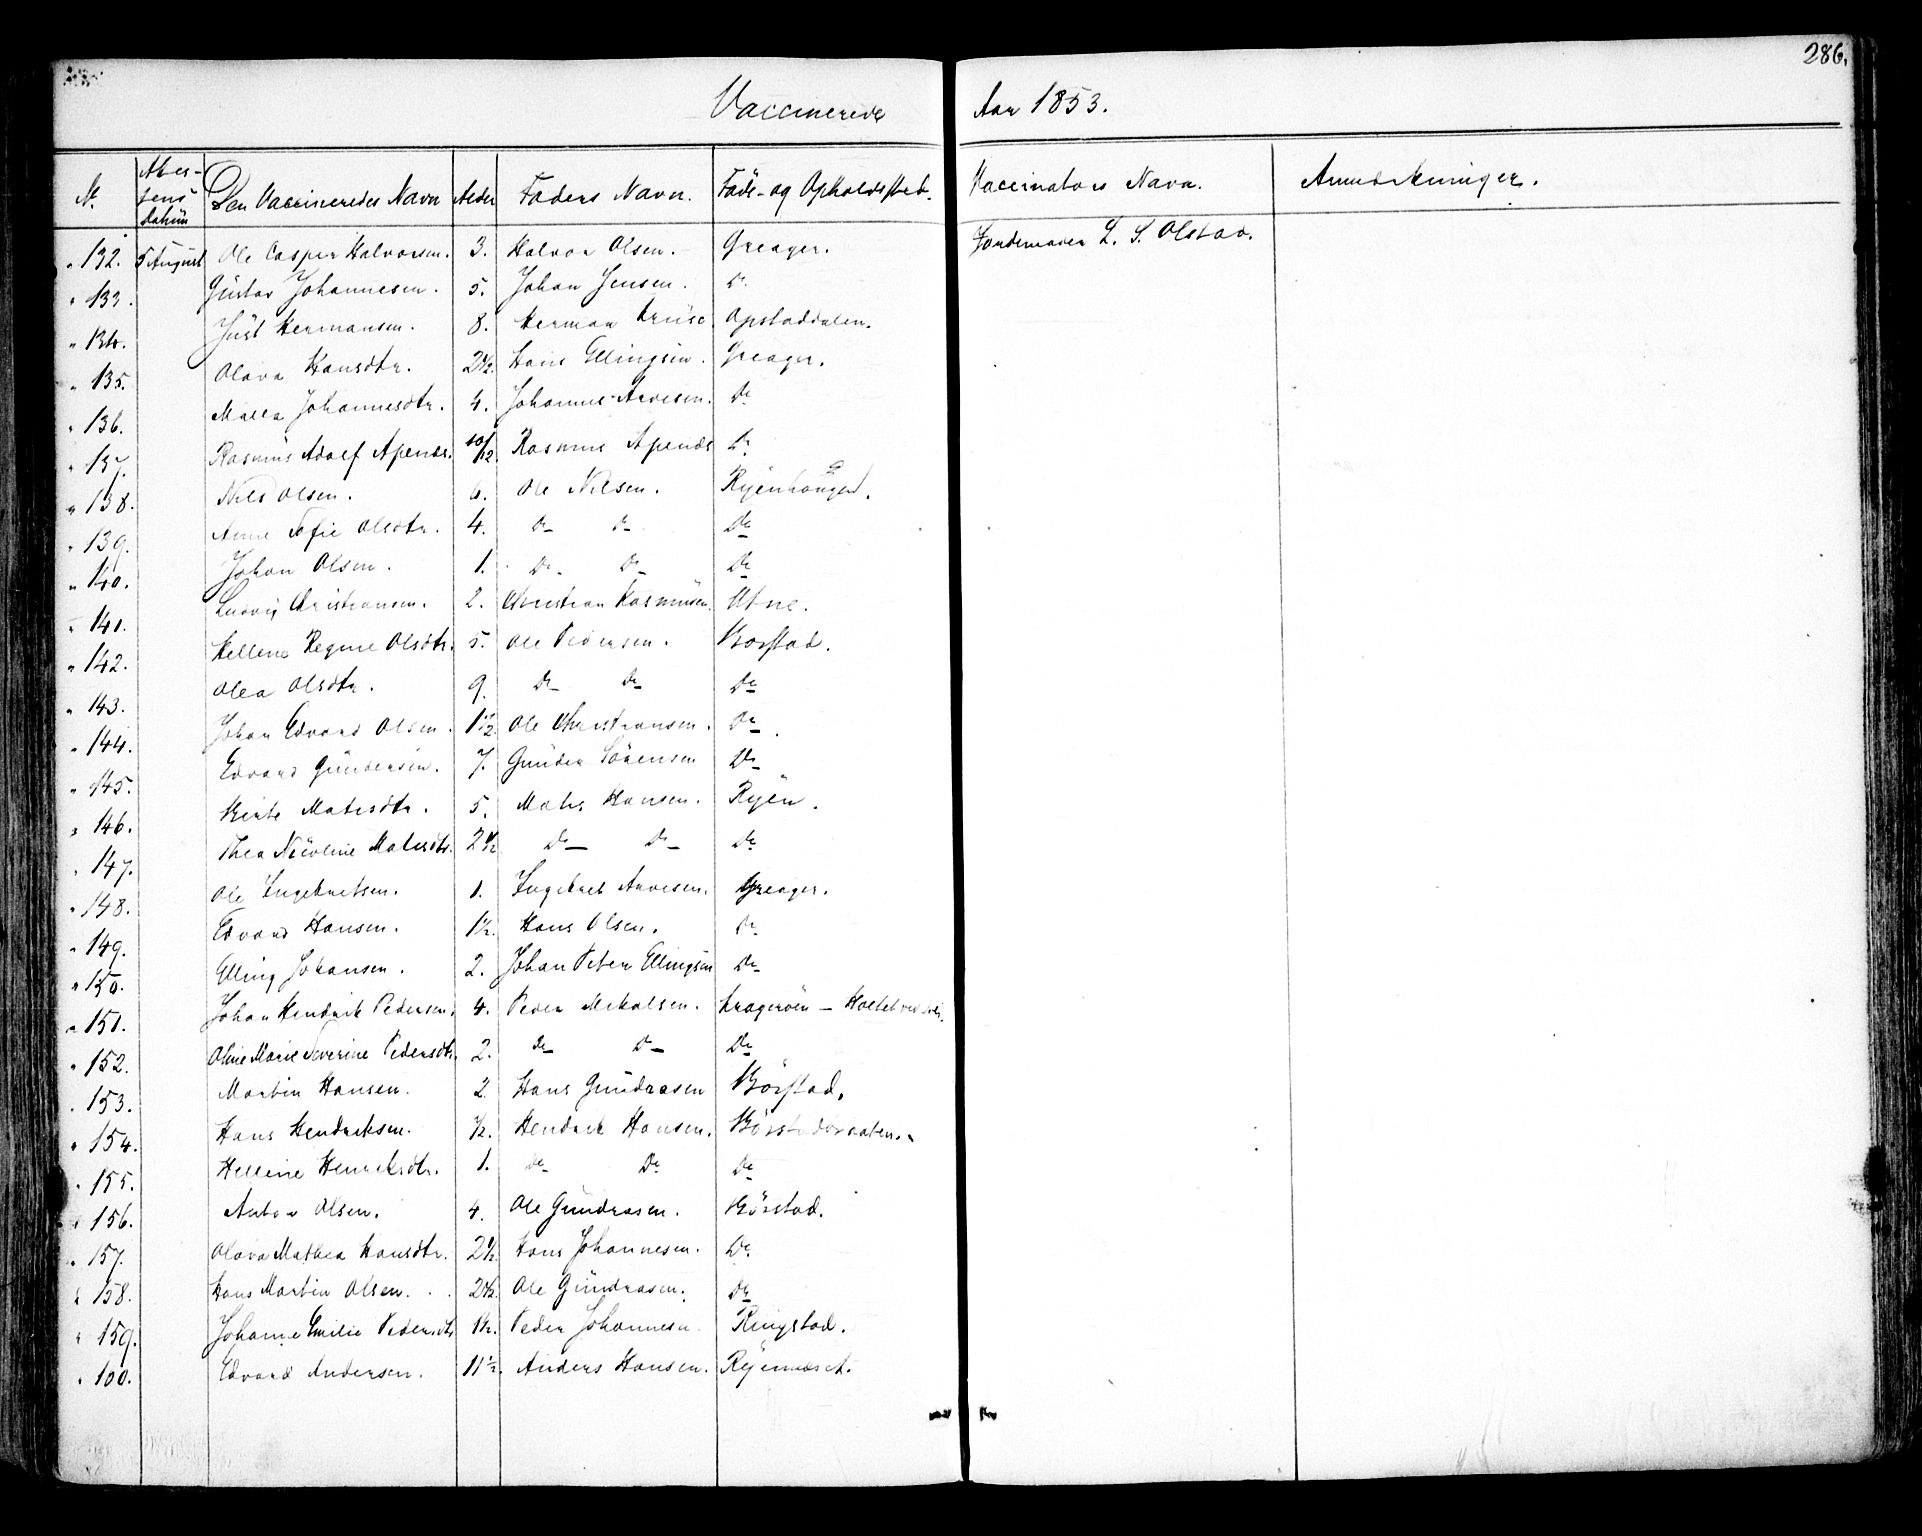 286.
Vaccinerede Aar 1853.
N. Attestens Datum Den Vaccineredes Navn Alder Faders Navn. Föde- og Opholdssted. Vaccinators Navn. Anmærkninger.
" 132. 5 August Ole Casper Halvorsen. 3. Halvor Olsen. Greager. Jordemoder L. S. Olstad.
" 133. Gustav Johannesen. 5. Johan Jensen. Do
" 134. Just Hermansen. 8. Herman Kruse Opstaddalen.
" 135. Olava Hansdtr. 2½. Hans Ellingsen. Greager.
" 136. Johannesdtr. 4. Johannes Arvesen. Do
" 137. Rasmus Adolf Apenæs. 10/12. Rasmus Apenæs Do
" 138. Nils Olsen. 6. Ole Nilsen. Ryenhaugen.
" 139. Anne Sofie Olsdtr. 4. Do Do Do
" 140. Johan Olsen. 1. Do Do Do
" 141. Ludvig Christiansen. 2. Christian Rasmusen.
" 142. Hellene Regine Olsdtr. 5. Ole Pedersen. Borstad.
" 143. Olea Olsdtr. 9. Do Do Do
" 144. Johan Edvard Olsen. 1½ Ole Christiansen. Do
" 145. Edvard Gundersen. 7. Gunder Sörensen Do
" 146. Matisdtr. 5. Matis Hansen. Ryen.
" 147. Thea Nicoline Matisdtr. 2½ Do Do Do
" 148. Ole Ingebretsen. 1. Ingebret Arvesen. Greager.
" 149. Edvard Hansen. 1½. Hans Olsen. Do
" 150. Elling Johansen. 2. Johan Peter Ellingsen Do
" 151. Johan Hendrik Pedersen. 4. Peder Mikalsen. Krageröen –
" 152. Oline Marie Severine Pedersdtr. 2. Do Do Do
" 153. Martin Hansen. 2. Hans Gundrosen Börstad.
" 154. Hans Hendriksen. ½. Hendrik Hansen.
" 155. Hellene Henriksdtr. 1. Do Do Do
" 156. Anton Olsen. 4. Ole Gundrosen. Börstad.
" 157. Olava Mathea Hansdtr. 2½. Hans Johannesen. Do
" 158. Hans Martin Olsen. 2½. Ole Gundrosen. Do
" 159. Johanne Emilie Pedersdtr 1½. Peder Johannesen Ringstad.
" 160. Edvard Andersen. 11½. Anders Hansen.